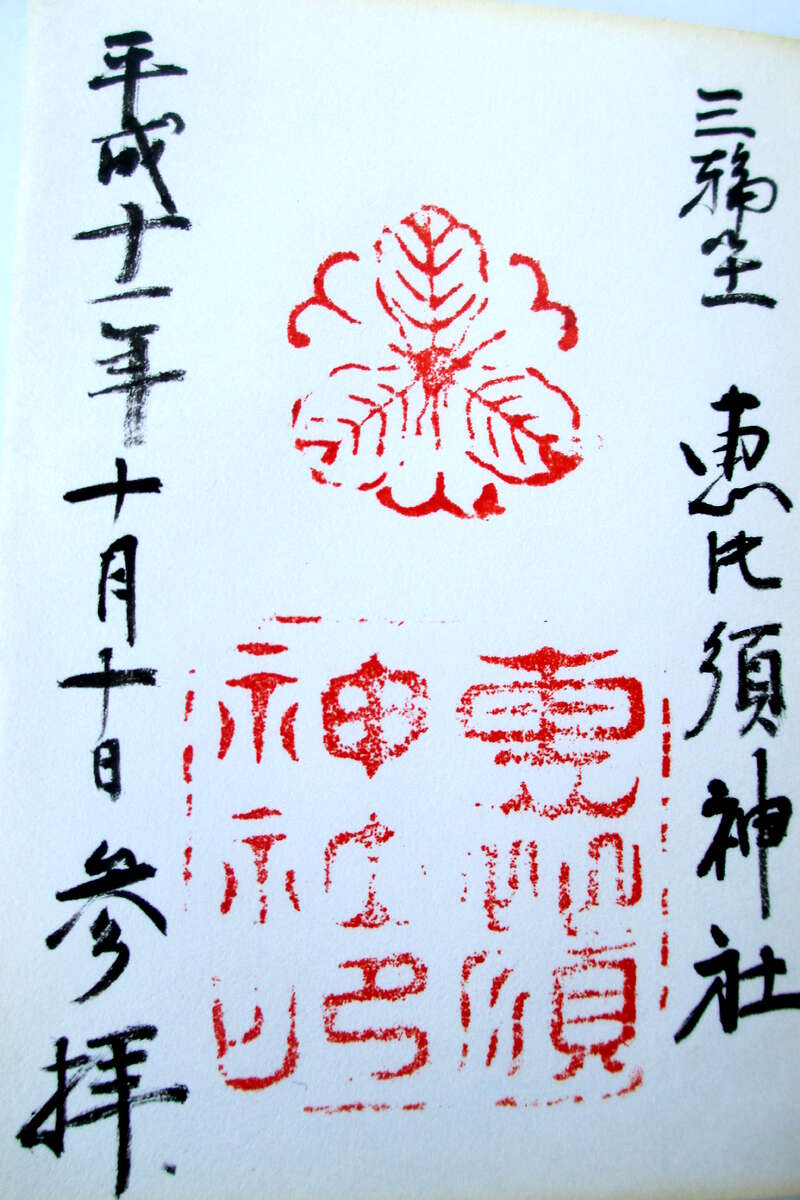 三輪坐 恵比須神社
恵比須
神社印
平成十一年十月十日 参拝